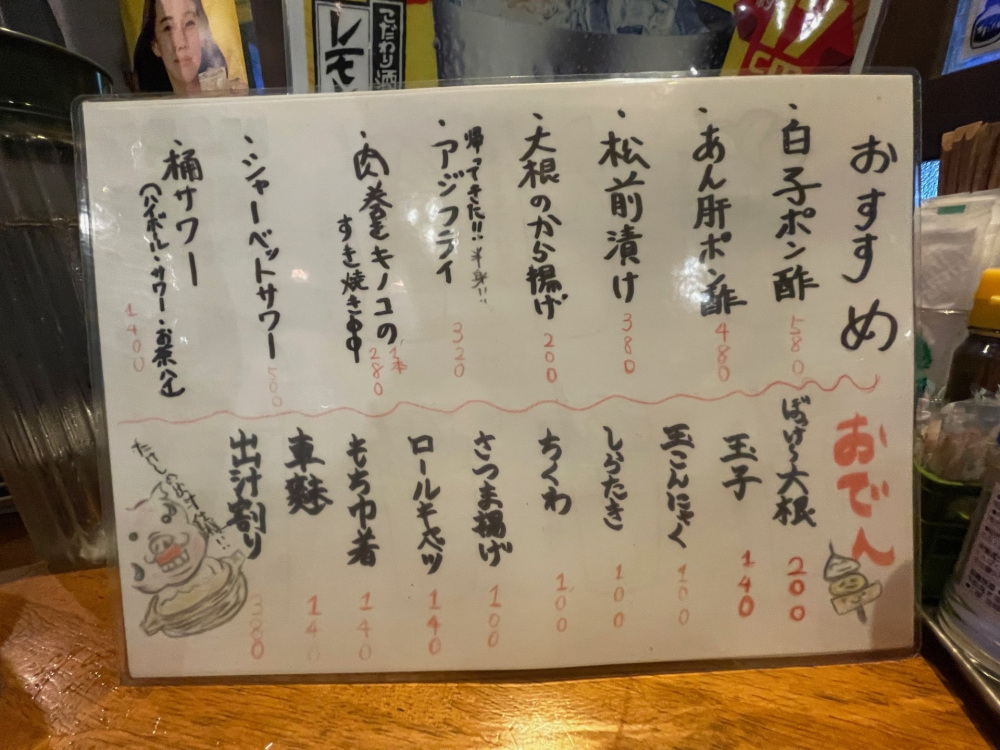 おすすめ
・白子ポン酢 580
・あん肝ポン酢 480
・松前漬け 380
・大根のから揚げ 200
帰ってきた!!半身!!
・アジフライ 320
・肉巻きキノコの
すき焼き串 1本 280
・シャーベットサワー 500
・桶サワー
(ハイボール・サワー・お茶ハイ) 1400
おでん
大根 200
玉子 140
玉こんにゃく 100
しらたき 100
ちくわ 100
さつま揚げ 100
ロールキャベツ 140
もち巾着 140
車麩 140
出汁割り 380
こだわり酒
レモン